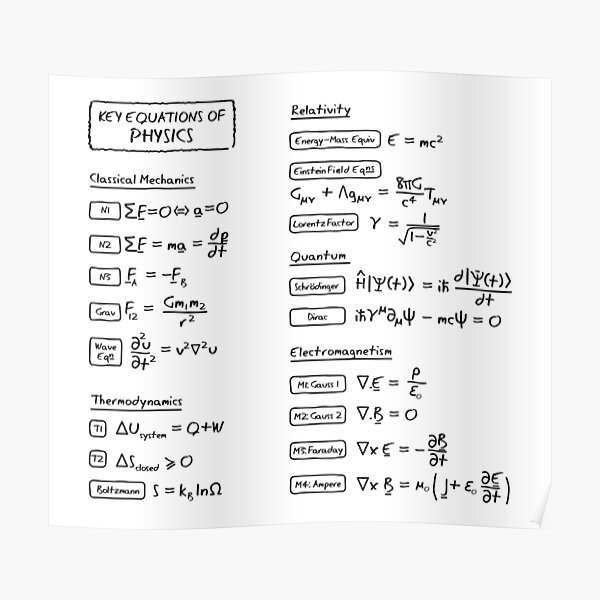 KEY EQUATIONS OF
PHYSICS
Classical Mechanics
N1 ΣF̲=0⇔a̲=0
N2 ΣF̲ = ma̲ = dp̲/dt
N3 F̲_A = -F̲_B
Grav F₁₂ = Gm₁m₂/r²
Wave Eqⁿ ∂²u/∂t² = v²∇²u
Thermodynamics
T1 ΔU_system = Q+W
T2 ΔS_closed ⩾ 0
Boltzmann S = k_B lnΩ
Relativity
Energy-Mass Equiv E = mc²
Einstein Field Eqⁿˢ
G_μν + Λg_μν = 8πG/c⁴ T_μν
Lorentz Factor γ = 1/√(1-v²/c²)
Quantum
Schrödinger Ĥ|Ψ(t)⟩ = iħ d|Ψ(t)⟩/dt
Dirac iħγ^μ∂_μψ - mcψ = 0
Electromagnetism
M1: Gauss 1 ∇.E̲ = ρ/ε₀
M2: Gauss 2 ∇.B̲ = 0
M3: Faraday ∇x E̲ = -∂B̲/∂t
M4: Ampere ∇x B̲ = μ₀(J̲+ ε₀ ∂E̲/∂t)